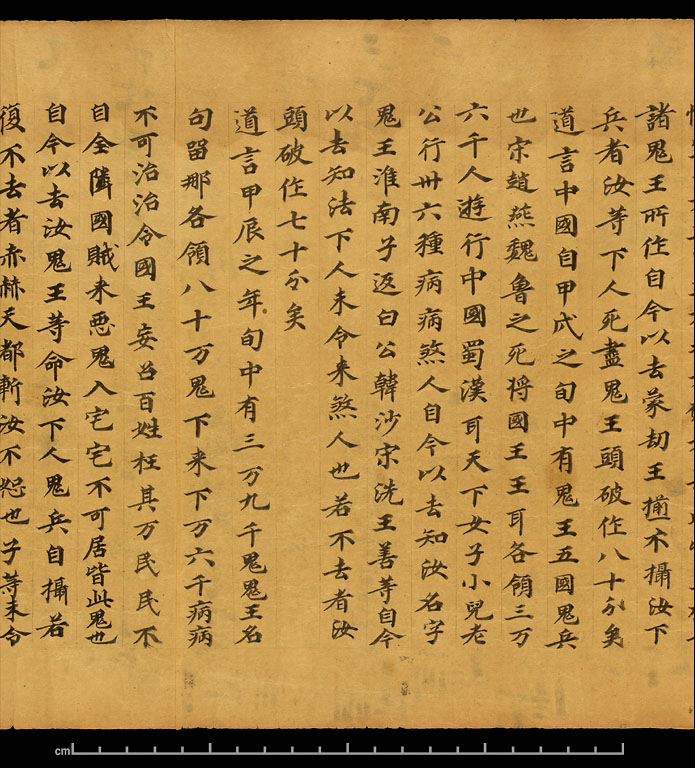 諸鬼王所住自今以去蒙劫王㨨不攝汝下
兵者汝等下人死盡鬼王頭破作八十分矣
道言中國自甲戌之旬中有鬼王五國鬼兵
也宋趙燕魏魯之死将國王王耳各領三万
六千人遊行中國蜀漢耳天下女子小兒老
公行卅六種病病煞人自今以去知汝名字
鬼王淮南子返白公韓沙宋洗王善等自今
以去知法下人未令来煞人也若不去者汝
頭破作七十分矣
道言甲辰之年旬中有三万九千鬼鬼王名
句留那各領八十万鬼下来下万六千病病
不可治治令國王妄召百姓枉其万民民不
自全隣國賊来惡鬼入宅宅不可居皆此鬼也
自今以去汝鬼王等命汝下人鬼兵自攝若
復不去者赤赫天都斬汝不恕也子等未令